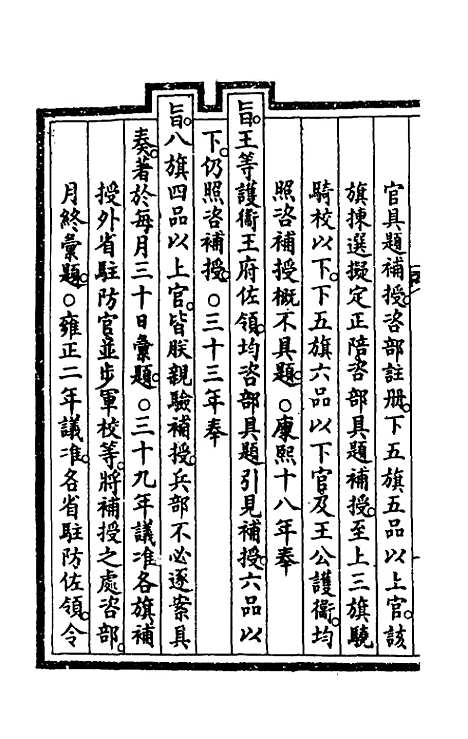 官具題補授。咨部註冊。下五旗五品以上官。該
旗揀選擬定正陪。咨部具題補授。至上三旗驍
騎校以下。下五旗六品以下官及王公護衛。均
照咨補授。概不具題。○康熙十八年奉
旨。王等護衛王府佐領。均咨部具題引見補授。六品以
下。仍照咨補授。○三十三年奉
旨。八旗四品以上官。皆朕親驗補授。兵部不必逐案具
奏。著於每月三十日彙題。○三十九年議准。各旗補
授外省駐防官並步軍校等。將補授之處咨部。
月終彙題。○雍正二年議准。各省駐防佐領。令